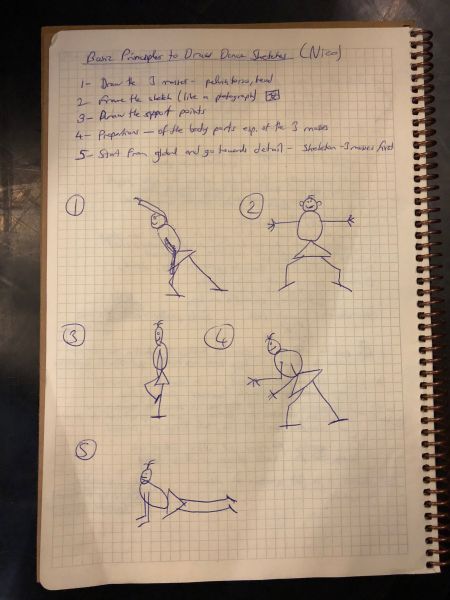 Basic Principles to Draw Dance Sketches (Nico)
1- Draw the 3 masses - pelvis, torso, head
2- Frame the sketch (like a photograph)
3- Draw the support points
4- Proportions - of the body parts esp. of the 3 masses
5- Start from global and go towards detail - Skeleton - 3 masses first
1
2
3
4
5